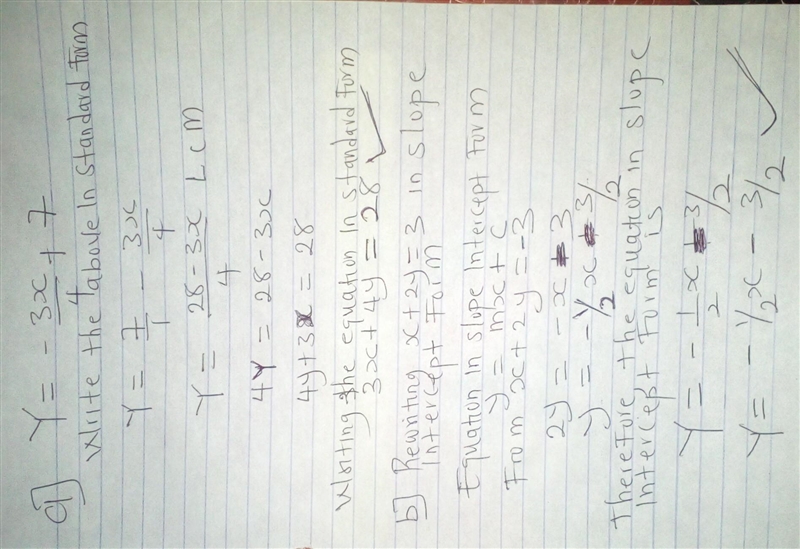 a] Y = - 3x/4 + 7
Write the above In Standard Form
Y = 7/1 - 3x/4
Y = 28-3x/4 LCM
4Y = 28 - 3x
4y+3x = 28
Writing the equation In standard Form
3x + 4y = 28 ✓
b) Rewriting x+2y=3 in slope
Intercept Form
Equation In slope Intercept Form
y = mx + c
From x + 2y = -3
2y = -x - 3
y = -1/2 x - 3/2
Therefore the equation in slope
Intercept Form is
Y = - 1/2 x - 3/2
Y = - 1/2 x - 3/2 ✓